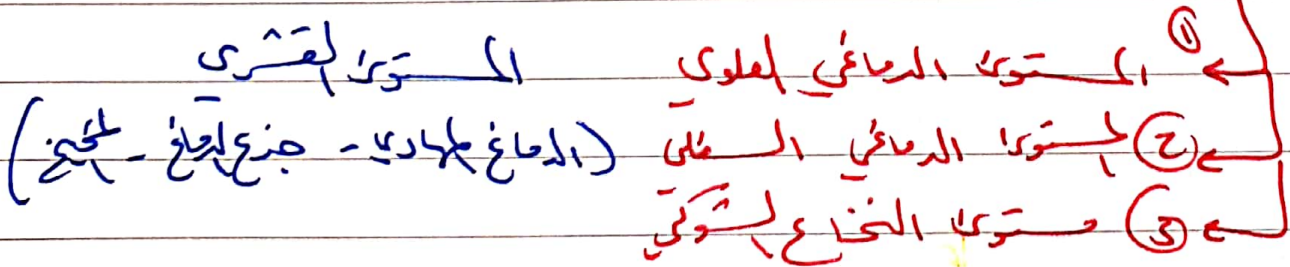 ① المستوى الدماغي العلوي المستوى القشري
② المستوى الدماغي السفلي (الدماغ المهادي - جذع الدماغ - المخيخ)
③ مستوى النخاع الشوكي